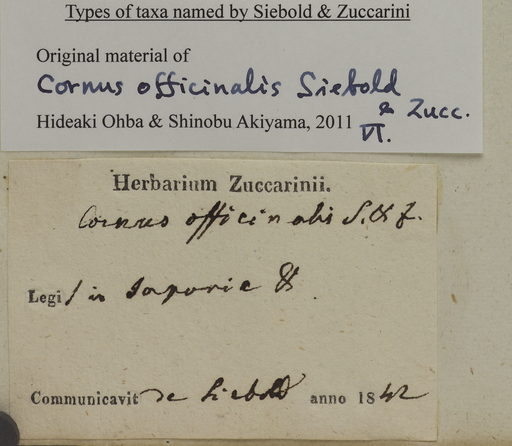 Types of taxa named by Siebold & Zuccarini
Original material of
Cornus officinalis Siebold
& Zucc.
Hideaki Ohba & Shinobu Akiyama, 2011
VI.
Herbarium Zuccarinii.
Cornus officinalis S. & Z.
Legit in Japonia
Communicavit de Siebold anno 1842